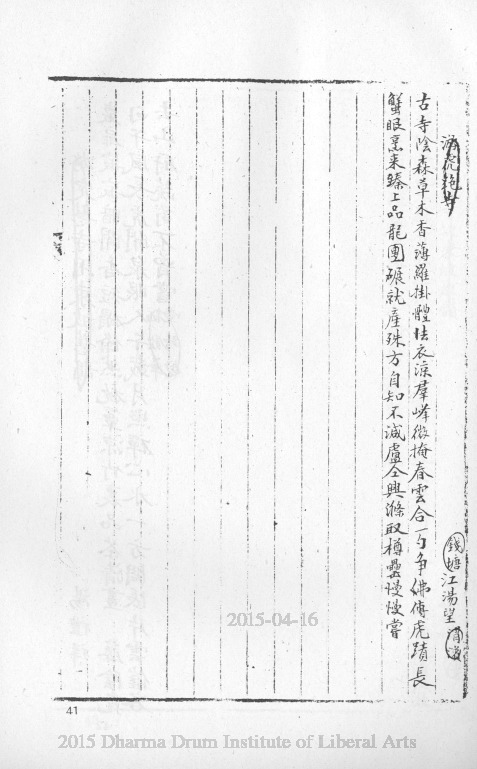 游虎跑寺
錢塘江湯望
古寺陰森草木香薄羅掛體怯衣涼羣峰微掩春雲合一勺爭佛傳虎蹟長
蟹眼烹来臻上品龍團碾就產殊方自知不減盧仝興滌取樽罍慢慢嘗
2015-04-16
41
2015 Dharma Drum Institute of Liberal Arts